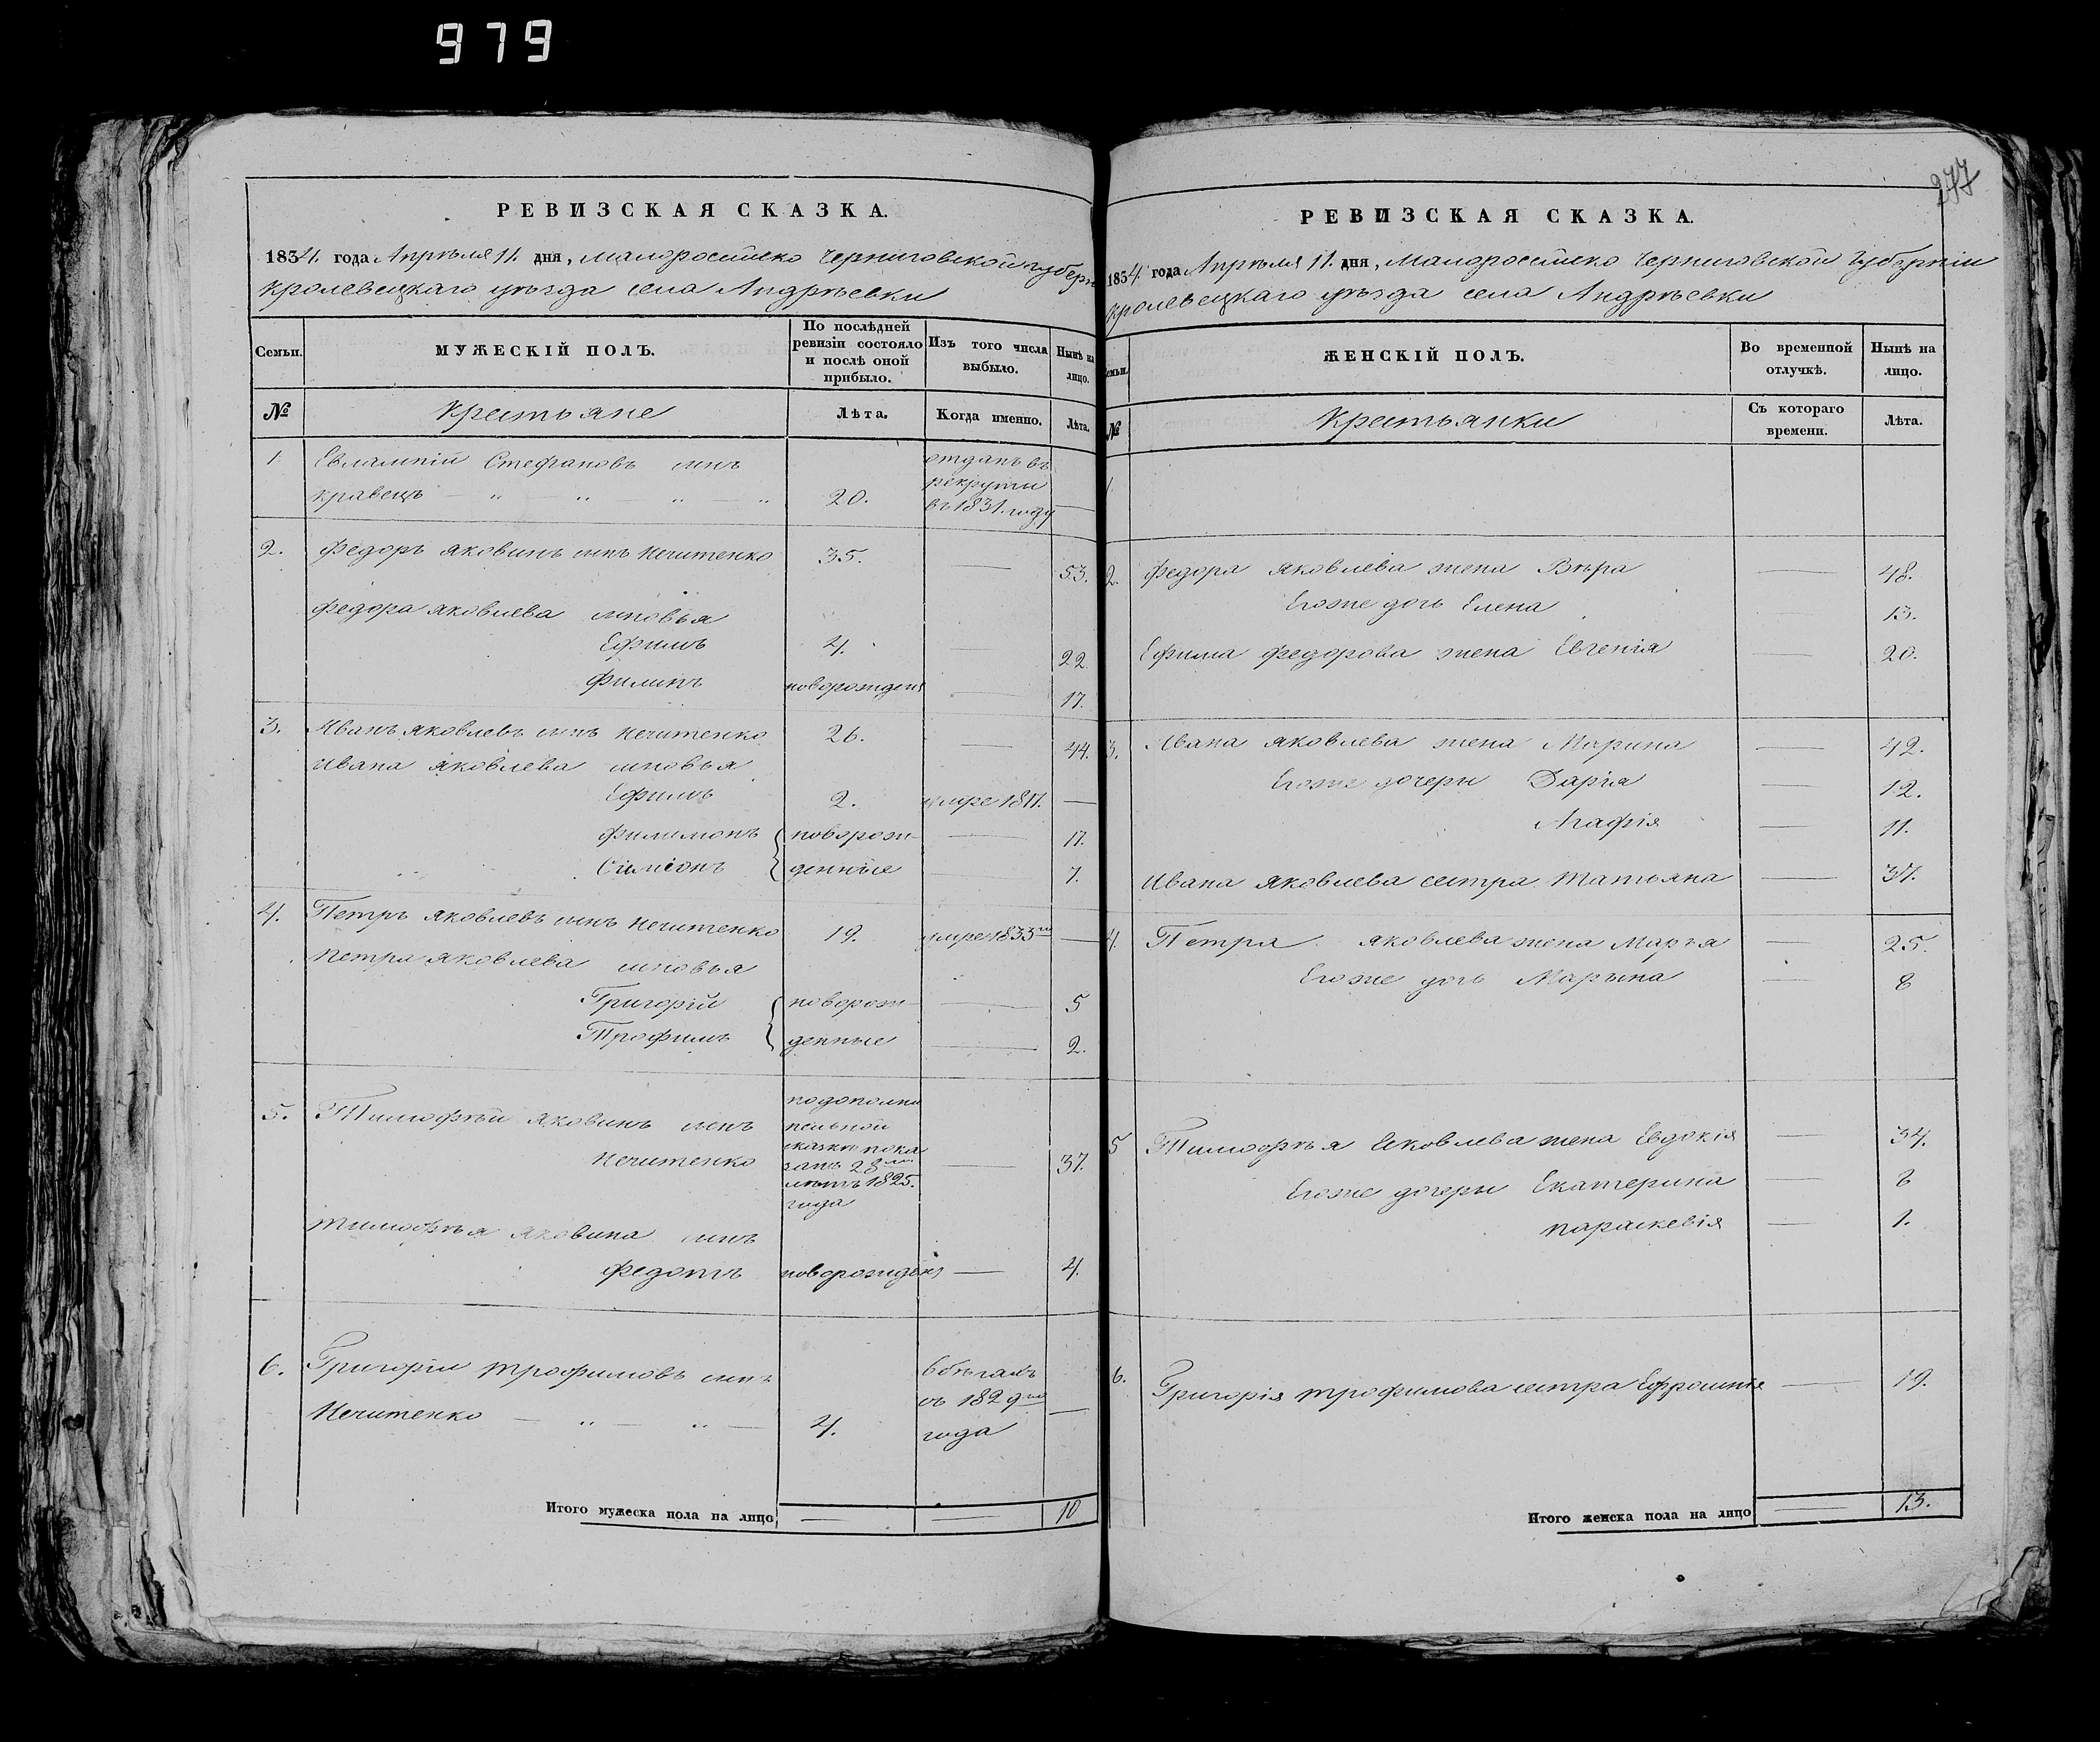 979
РЕВИЗСКАЯ СКАЗКА.
1834. года Апрѣля 11. дня, Малороссійско Черниговской губерн
Кролевецкаго уѣзда села Андрѣевки
Семьи.
МУЖЕСКІЙ ПОЛЪ.
По послѣдней ревизіи состояло и послѣ оной прибыло.
Изъ того числа выбыло.
Нынѣ на лицо.
№
Крестьяне
Лѣта.
Когда именно.
Лѣта.
1 Евлампій Стефановъ сынъ
Кравецъ — " " " — " 20. отданъ въ рекруты въ 1831. году —
2. Федоръ Яковлевъ сынъ Нечитенко 35. — 53.
Федора Яковлева сыновья
Ефимъ 4. — 22
Филипъ новорожден — 17.
3. Иванъ Яковлевъ сынъ Нечитенко 26. — 44.
Ивана Яковлева сыновья
Ефимъ 2. умре 1817. —
Филимонъ новорож- — 17.
Симіонъ денные — 7.
4. Петръ Яковлевъ сынъ Нечитенко 19. умре 1833го —
Петра Яковлева сыновья
Григорій новорож- — 5
Трофимъ денные — 2.
5. Тимофѣй Яковинъ сынъ
Нечитенко
подополни
тельной
сказкѣ пока
занъ 28ми
лѣтъ 1825.
года
— 37.
Тимофѣя Яковина сынъ
Федотъ новорожден — 4.
6. Григорій Трофимовъ сынъ
Нечитенко — " — " — 4.
въ бѣгахъ
съ 1829го
года
—
Итого мужеска пола на лицо — — 10
277
РЕВИЗСКАЯ СКАЗКА.
1834. года Апрѣля 11. дня, Малороссійско Черниговской Губерніи
Кролевецкаго уѣзда села Андрѣевки
Семьи.
ЖЕНСКІЙ ПОЛЪ.
Во временной отлучкѣ.
Нынѣ на лицо.
№
Крестьянки
Съ котораго времени.
Лѣта.
1.
2. Федора Яковлева жена Вѣра — 48.
Егоже дочь Елена 13.
Ефима Федорова жена Евгенія — 20.
3. Ивана Яковлева жена Марина — 42.
Егоже дочери Дарія — 12.
Агафія — 11.
Ивана Яковлева сестра Татьяна — 37.
4. Петра Яковлева жена Марья — 25.
Егоже дочь Марѣна — 8
5 Тимофѣя Яковлева жена Евдокія — 34.
Егоже дочеры Екатерина — 8
Параскевія — 1.
6. Григорія Трофимова сестра Ефросинія — 19.
Итого женска пола на лицо — 13.